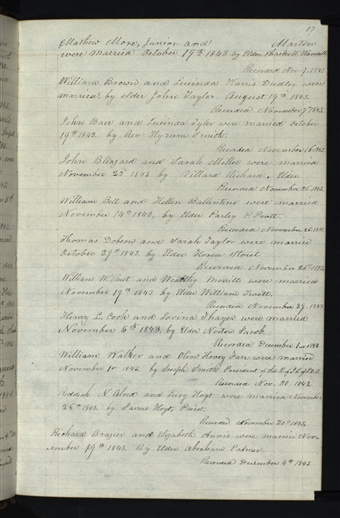 17
Mathew More, Junior and Marten
were married October 19th 1843 by Elder Charles
Recorded Nov 7. 1843
William Brown and Lucinda Dudley were
married by elder John Taylor August 19th 1843.
Recorded November 7 1843
John Barr and Lucinda Tyler were married October
19th 1843. by Rev. Hyrum Smith.
Recorded November 15 1843
John Blizard and Sarah were married
November 23d 1843 by Willard Richard, Elder
Recorded November 25 1843
William Bell and Hellen Ballentine were married
November 14th 1843, by Elder Parley P. Pratt.
Recorded November 26 1843
Thomas Dobson and Sarah Taylor were married
October 29th 1843. by Elder Hosea Stout
Recorded November 26th 1843
William and Merritt were married
November 19th 1843 by Elder William
Recorded November 29. 1843
Henry L. Cook and Lovina Thayer were married
November 6th 1843 by Elder Norton Jacob.
Recorded December 1st 1843
William Walker and Olive Hovey Farr were married
November 1st 1843 by Joseph Smith President of the
Recorded Nov. 20 1843
Reddick N. Alred and Lucy Hoyt were married November
26th 1843 by James Hoyt, Priest.
Recorded November 30th 1843
Richard and Elizabeth were married Nov-
ember 19th 1843 By Elder Abraham Palmer
Recorded December 4th 1843